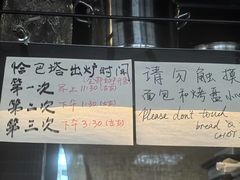 恰巴塔出炉时间
第一次 早上 11:30 (左右)
第二次 下午 1:30 (左右)
第三次 下午 3:30 (左右)
请勿触摸
面包和烤盘 小
Please don't touch
bread &
(HOT)